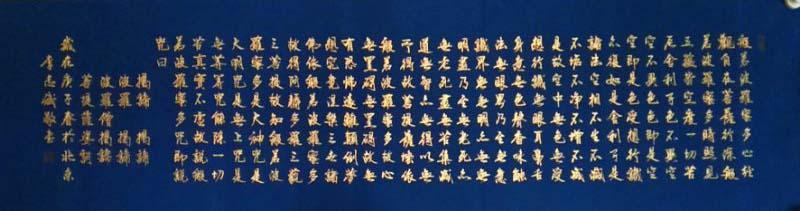 般若波羅蜜多心經
觀自在菩薩行深般
若波羅蜜多時照見
五蘊皆空度一切苦
厄舍利子色不異空
空不異色色即是空
空即是色受想行識
亦復如是舍利子是
諸法空相不生不滅
不垢不淨不增不減
是故空中無色無受
想行識無眼耳鼻舌
身意無色聲香味觸
法無眼界乃至無意
識界無無明亦無無
明盡乃至無老死亦
無老死盡無苦集滅
道無智亦無得以無
所得故菩提薩埵依
般若波羅蜜多故心
無罣礙無罣礙故無
有恐怖遠離顛倒夢
想究竟涅槃三世諸
佛依般若波羅蜜多
故得阿耨多羅三藐
三菩提故知般若波
羅蜜多是大神咒是
大明咒是無上咒是
無等等咒能除一切
苦真實不虛故說般
若波羅蜜多咒即說
咒曰
揭諦 揭諦
波羅 揭諦
波羅僧 揭諦
菩提薩婆訶
歲在庚子春於北京
李志誠敬書